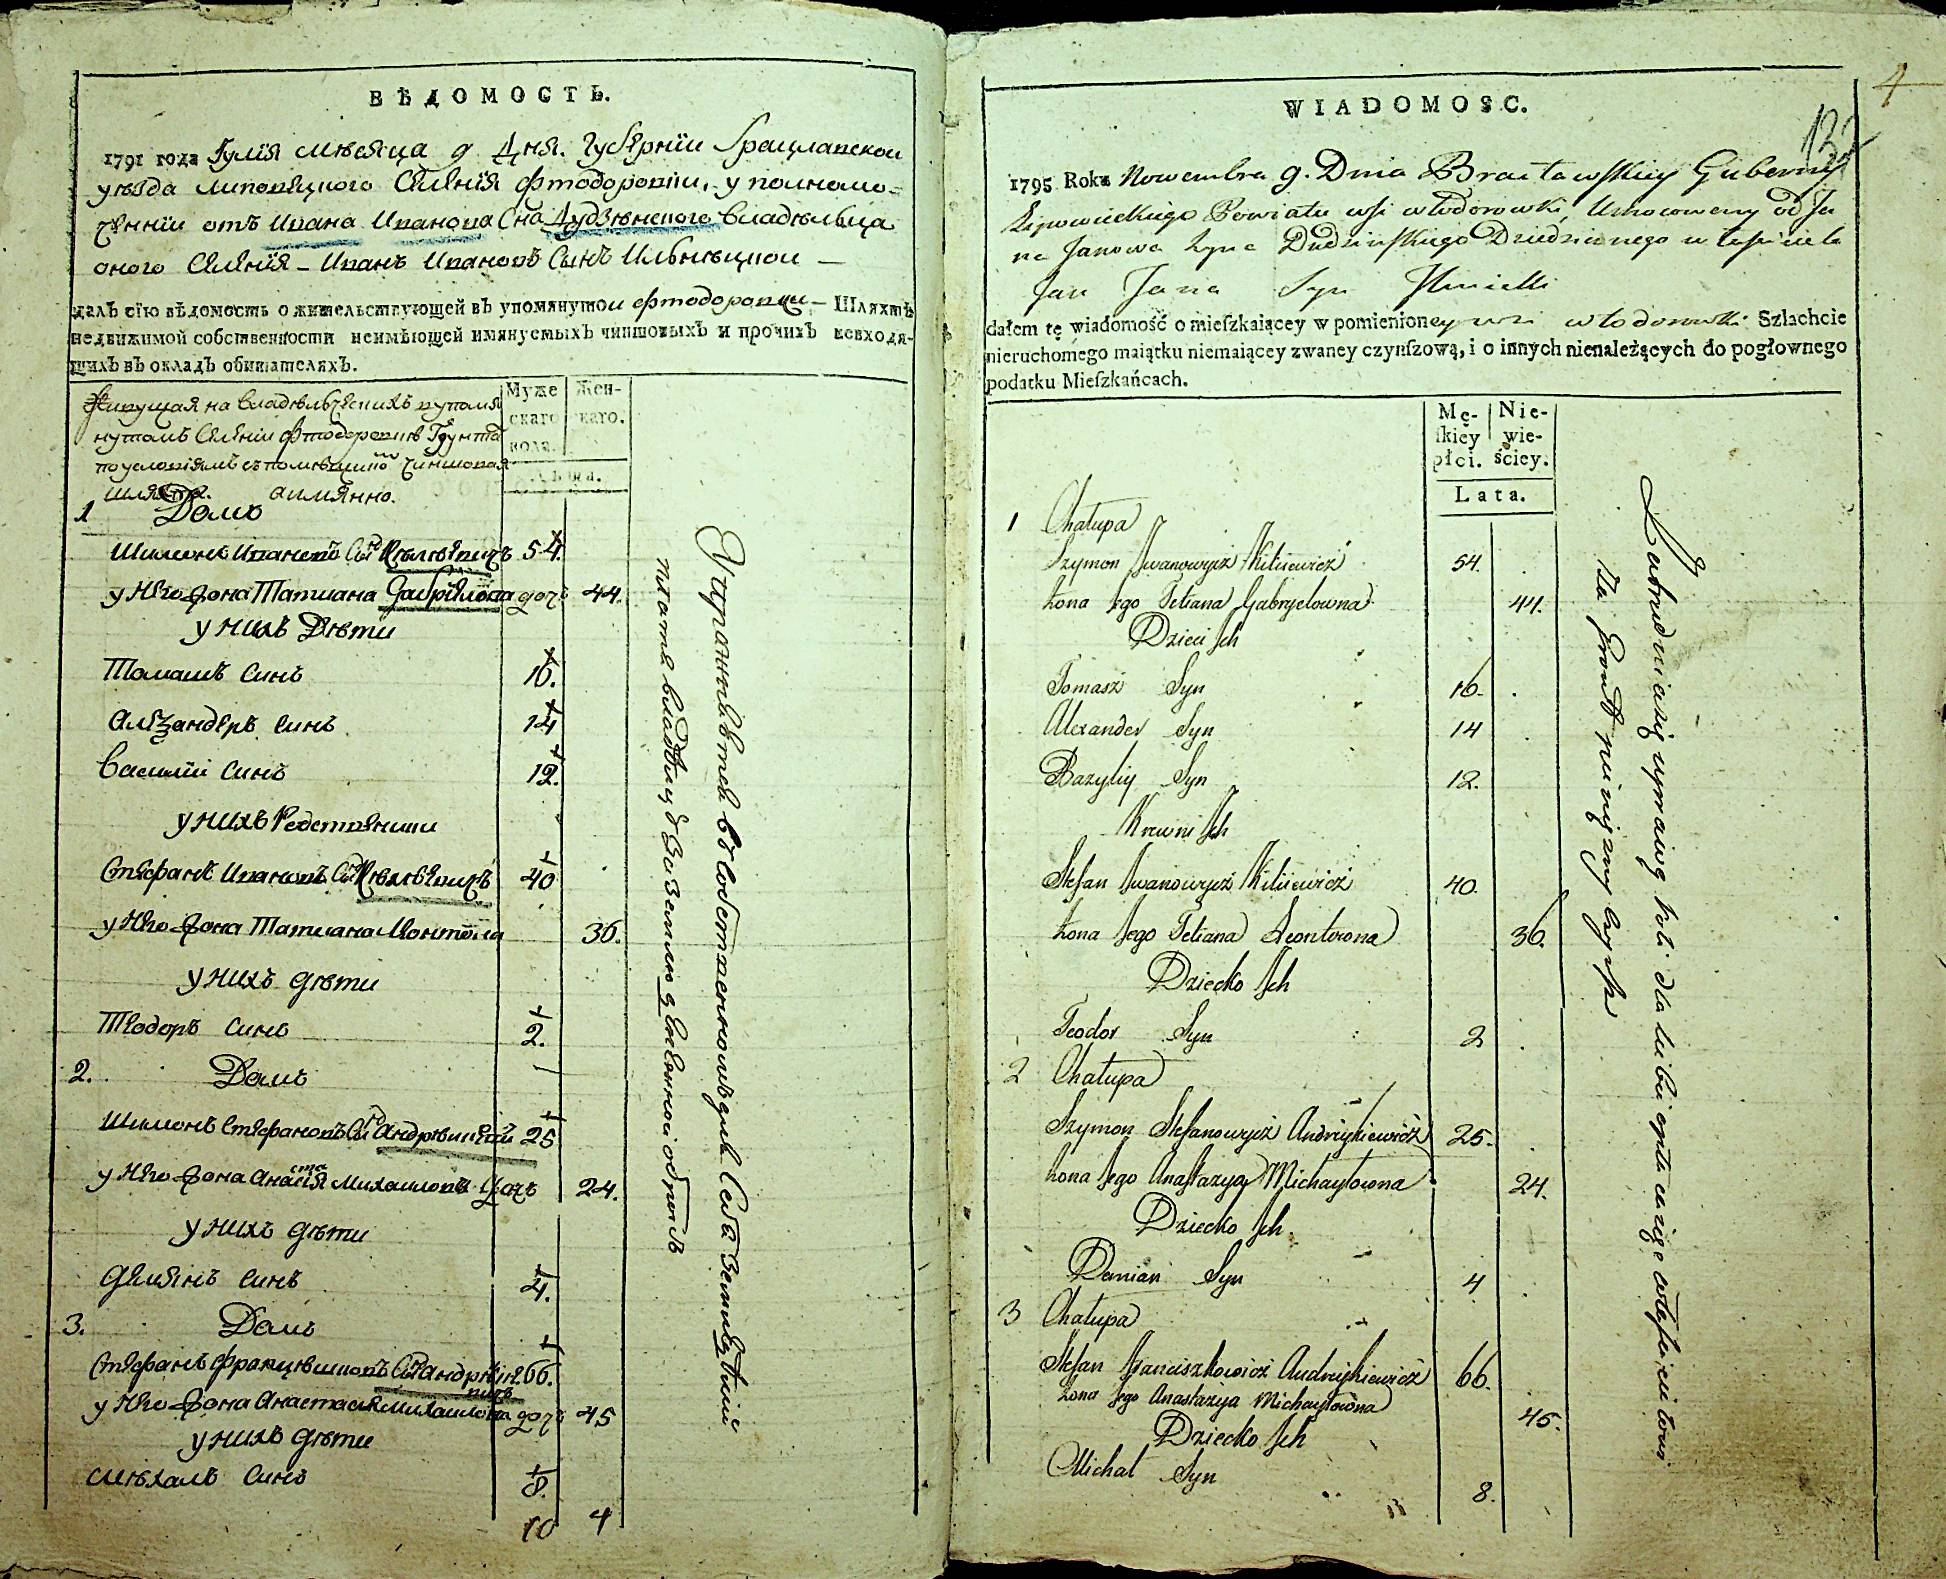 ВѢДОМОСТЬ.
1791 года Іулія мѣсяца 9 Дня. Губернїи Брацлавской
уѣзда Липовецкого Селенія Фтодоровки, уполномо-
ченнїи отъ Ивана Иванова Сна Дудзѣнского владѣльца
оного Селенія – Иванъ Ивановъ Сынъ
далъ сїю вѣдомость о жительствующей въ упомянутои Фтодоровци – Шляхтѣ
недвижимой собственности неимѣющей имянуемыхъ чиншовыхъ и прочихъ невходя-
щихъ въ окладъ обитателяхъ.
Живущая на владѣльческихъ в упомя
нутомъ Селеніи Фтодоровкѣ Грунта
по условіямъ съ помѣщико чиншовая
шляхта. аимянно.
Муже
скаго
пола.
Жен-
скаго.
Лѣта.
1 Домъ
Шимонъ Ивановъ Сы Кѣлѣевичъ 54.
у Него Жона Татиана Габріелова дочъ 44.
у нихъ Дѣти
Томашъ Синъ 16.
Алеѯандеръ Синъ 14
Василій Синъ 12.
у нихъ Родственники
Стефанъ Ивановъ Сы Кѣлѣевичъ 40
у Него Жона Татиана Леонтова 36.
у нихъ дѣти
Теодоръ Синъ 2.
2. Домъ
Шимонъ Стефановъ Сы Андрѣикевич 25
у Него Жона Анастасія Михаилова Дочъ 24.
у нихъ дѣти
Демянъ Синъ 4.
3. Домъ
Стефанъ Францѣшковъ Сы Андрѣике 66.
вичъ
у Него Жона Анастасия Михаилова дочъ 45
у нихъ дѣти
Мѣхалъ Синъ 8.
10 4
4
132
WIADOMOSC.
1795 Roku Nowembra 9. Dnia Bracławskiey Gubernij
Lipowieckiego Powiatu wsi wtodorowki, Umocowany od Ja
na Janowa Syna Dudzińskiego Dziedzicznego właściciela
Jan Jana Syn
dałem tę wiadomość o mieſzkaiącey w pomienioney wsi wtodorowki Szlachcie
nieruchomego maiątku niemaiącey zwaney czynſzową, i o innych nienależących do pogłownego
podatku Mieſzkańcach.
Mę-
ſkiey
płci.
Nie-
wie-
ściey.
Lata.
1 Chałupa
Szymon Iwanowycz Kiliiewicz 54.
żona Jego Tetiana Gabryelowna 44.
Dzieci Ich
Tomasz Syn 16.
Alexander Syn 14
Bazyliy Syn 12.
Krewni Ich
Stefan Iwanowycz Kiliiewicz 40.
żona Jego Tetiana Leontowna 36.
Dziecko Ich
Teodor Syn 2
2 Chałupa
Szymon Stefanowycz Andrzykiewicz 25.
żona Jego Anastazya Michayłowna 24.
Dziecko Ich.
Demian Syn 4
3 Chałupa
Stefan Franciszkowicz Andrzykiewicz 66.
żona Jego Anastazya Michayłowna 45.
Dziecko Ich
Michał Syn 8.